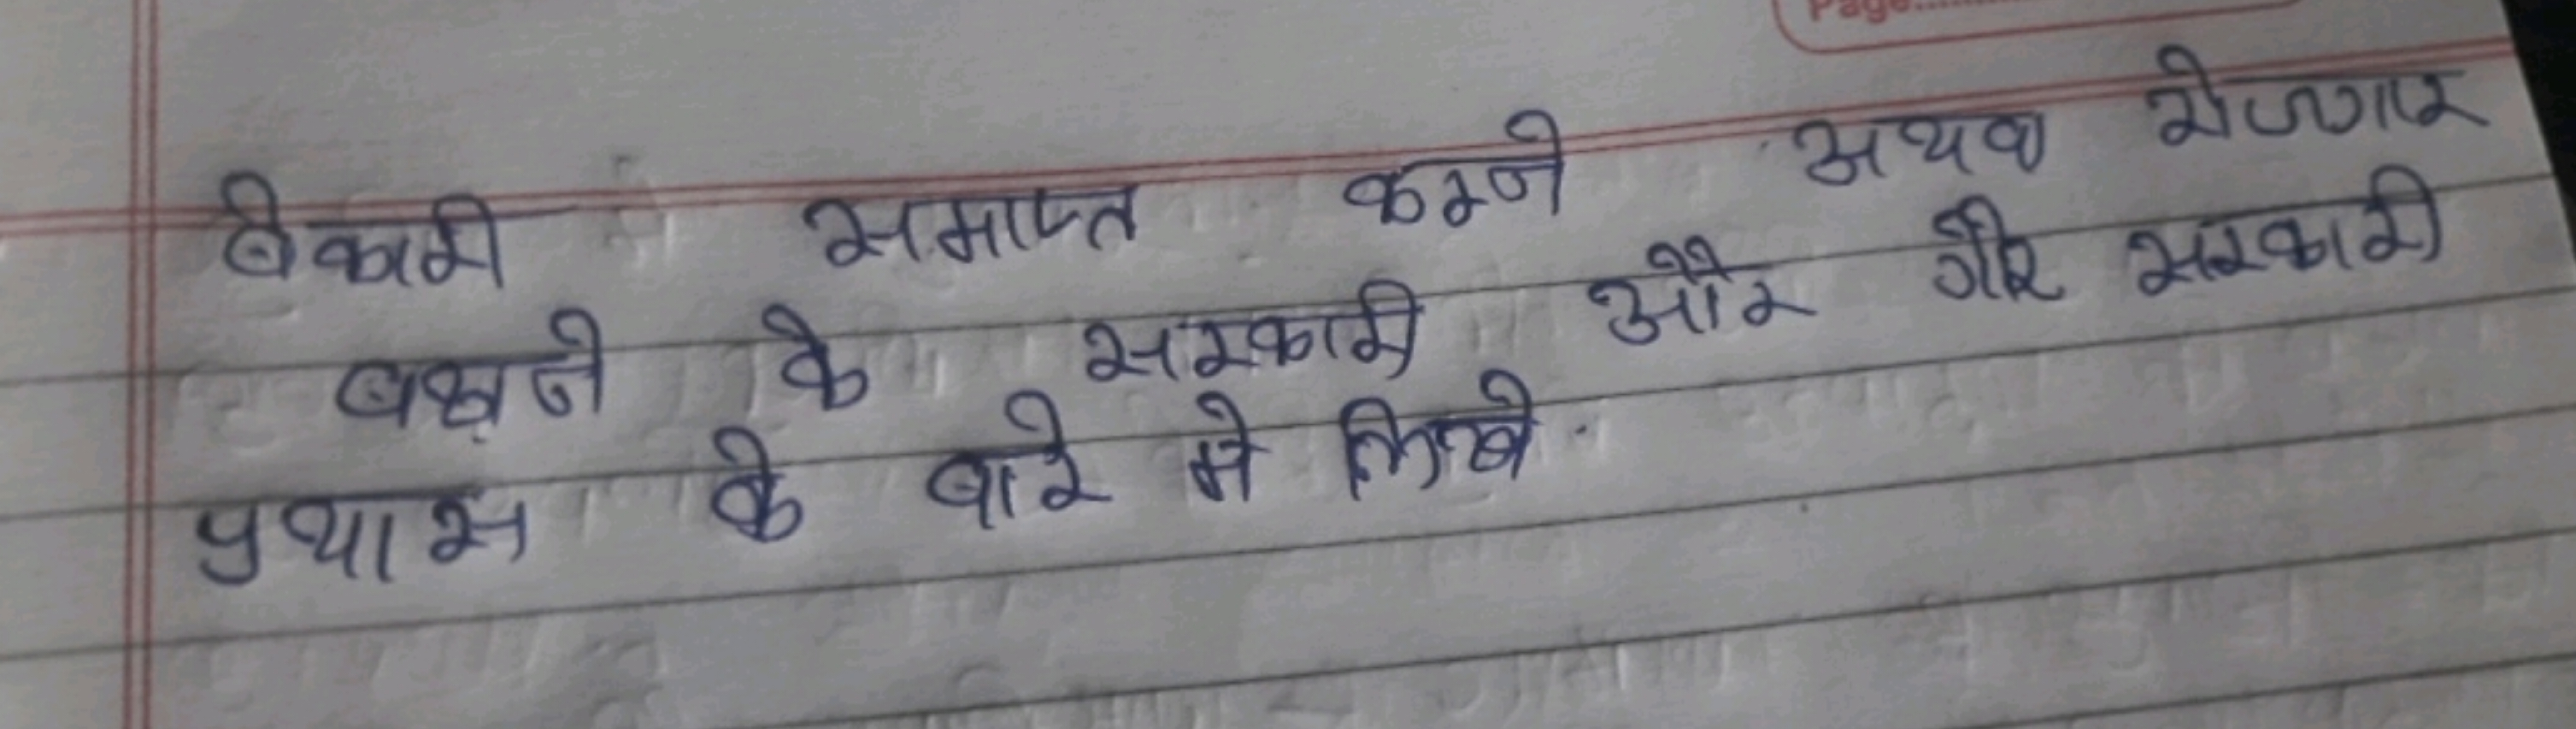 Page..........
बेकारी समाप्त करने अथवा रोजगार
के सरकारी और गैर सरकारी
प्रयास के बारे मे लिखे.